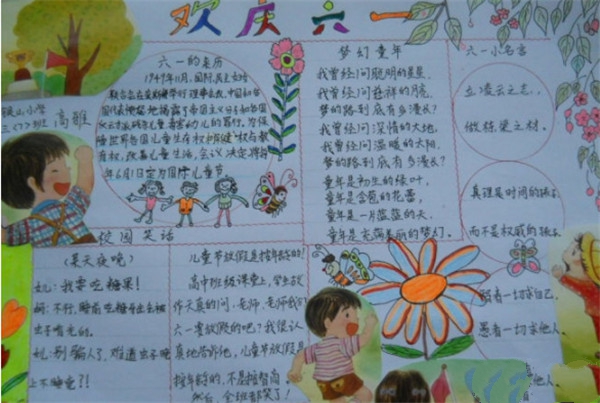 欢庆六一
六一的来历
1949年11月,国际民主妇
女联合会在莫斯科举行理事会议,中国和各
国代表愤怒地揭露了帝国主义分子和各国
反动派残杀、毒害儿童的罪行。为了保
障世界各国儿童生存权、保健权和教
育权,改善儿童生活,会议决定将每
年6月1日定为国际儿童节
三(7)班 高雅
梦幻童年
我曾经问聪明的星星,
我曾经问慈祥的月亮,
梦的路到底有多漫长?
我曾经问深情的大地,
我曾经问温暖的太阳,
梦的路到底有多漫长?
童年是初生的绿叶,
童年是含苞的花蕾,
童年是一片蓝蓝的天,
童年是充满美丽的梦幻。
六一小名言
立凌云之志,
做栋梁之材。
真理是时间的孩子,
而不是权威的孩子
智者一切求自己,
愚者一切求他人。
校园笑话
(某天夜晚)
女儿:我要吃糖果!
妈:不行,睡前吃糖牙齿会被
虫子啃光的。
女儿:别骗人了,难道虫子晚
上不睡觉?!
儿童节放假是按年龄的!
高中班级课堂上,学生故
作天真的问:老师,老师我们
六一要放假的吧?我很认
真地告诉他,儿童节放假是
按年龄的,不是按智商。
然后,全班都笑了!